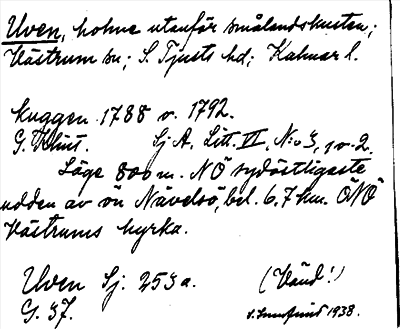 Uven, holme utanför smålandskusten;
Västrum sn; S. Tjusts hd; Kalmar l.
kuggen 1788 o. 1792.
G. Klint. Sj. A. Litt. VI, N:o 3, 1 o. 2.
Läge 800 m. NÖ sydöstligaste
udden av ön Nävelsö, bel. 6,7 km. ÖNÖ
Västrums kyrka.
Uven Sj. 253 a. (Vänd!)
G. 37. 1938.